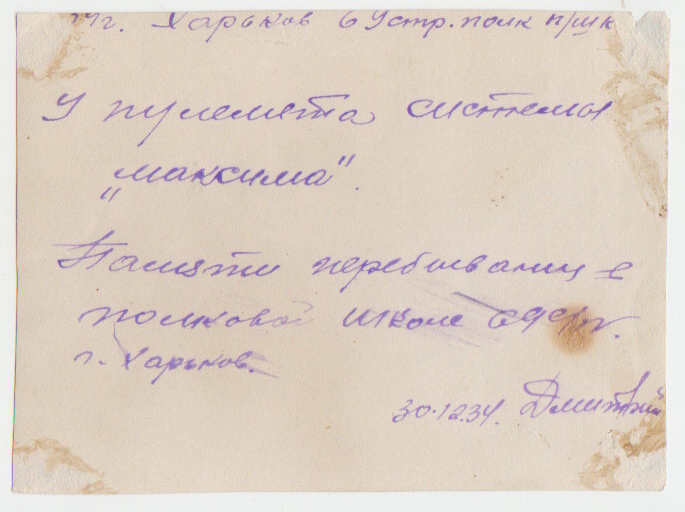 г. Харьков 6 Устр. полк п/шк
У пулемета системы
„максима".
Памяти перебывания в
полковой школе
г. Харьков.
30.12.34. Дмитрий